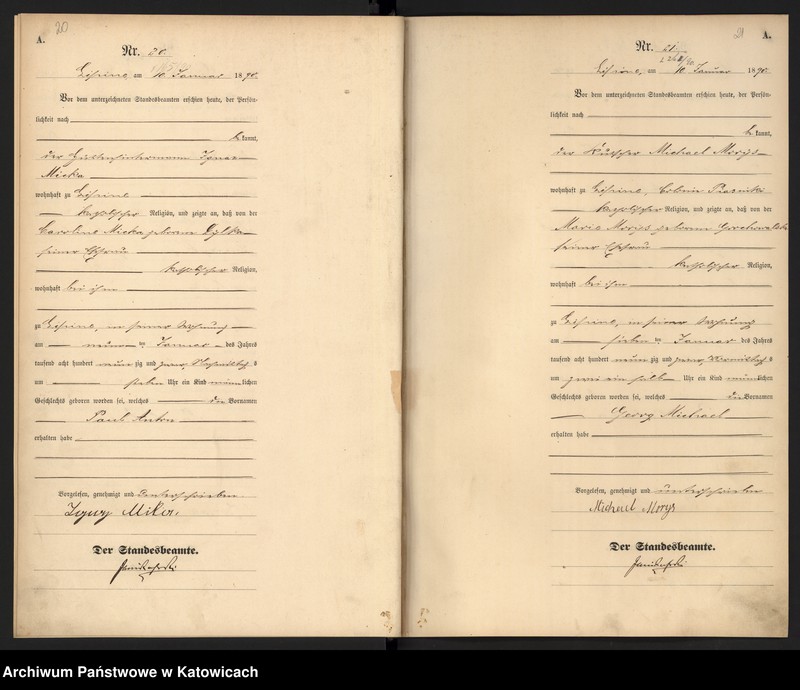 20
A.
Nr. 20.
Lipine am 10 Januar 1890.
Vor dem unterzeichneten Standesbeamten erschien heute, der Persön-
lichkeit nach
be kannt,
der Ignac
Micka
wohnhaft zu Lipine
katholischer Religion, und zeigte an, daß von der
Caroline Micka geborenen Dylka
seiner Ehefrau
katholischer Religion,
wohnhaft bei ihm
zu Lipine, in seiner Wohnung
am neun ten Januar des Jahres
tausend acht hundert neun zig und zwar Nachmittags
um sieben Uhr ein Kind männlichen
Geschlechts geboren worden sei, welches die Vornamen
Paul Anton
erhalten habe
Vorgelesen, genehmigt und unterschrieben
Der Standesbeamte.
21
A.
Nr. 21.
Lipine, am 10 Januar 1890.
Vor dem unterzeichneten Standesbeamten erschien heute, der Persön-
lichkeit nach
be kannt,
der Kutscher Michael Morys
wohnhaft zu Lipine, Colonie Piasniki
katholischer Religion, und zeigte an, daß von der
Marie Morys geborenen
seiner Ehefrau
katholischer Religion,
wohnhaft bei ihm
zu Lipine, in seiner Wohnung
am sieben ten Januar des Jahres
tausend acht hundert neun zig und zwar Vormittags
um zwei ein halb Uhr ein Kind männlichen
Geschlechts geboren worden sei, welches die Vornamen
Georg Michael
erhalten habe
Vorgelesen, genehmigt und unterschrieben
Michael Morys
Der Standesbeamte.
Archiwum Państwowe w Katowicach